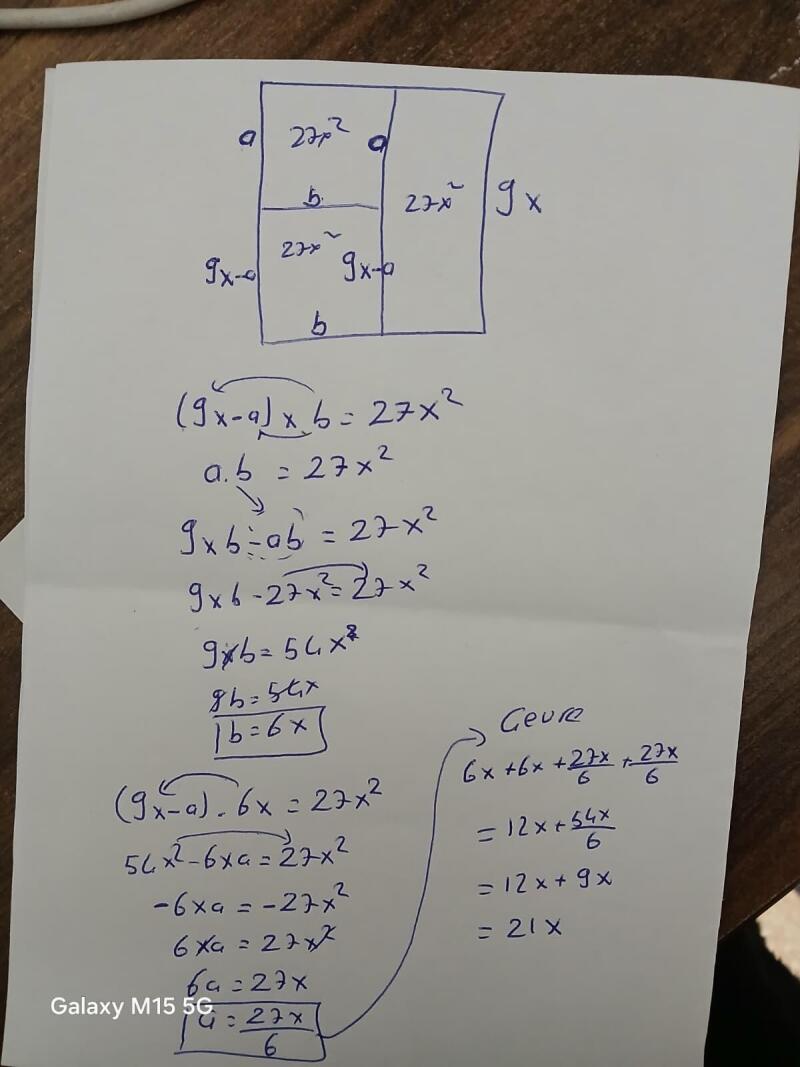 a 27x² a
b 27x² 9x
27x²
9x-a 9x-a
b
(9x-a) x b = 27x²
a.b = 27x²
9xb - ab = 27x²
9xb - 27x² = 27x²
9xb = 54x²
9b = 54x
b = 6x
(9x-a) . 6x = 27x²
54x² - 6xa = 27x²
-6xa = -27x²
6xa = 27x²
6a = 27x
a = 27x/6
Cevre
6x + 6x + 27x/6 + 27x/6
= 12x + 54x/6
= 12x + 9x
= 21x
Galaxy M15 5G